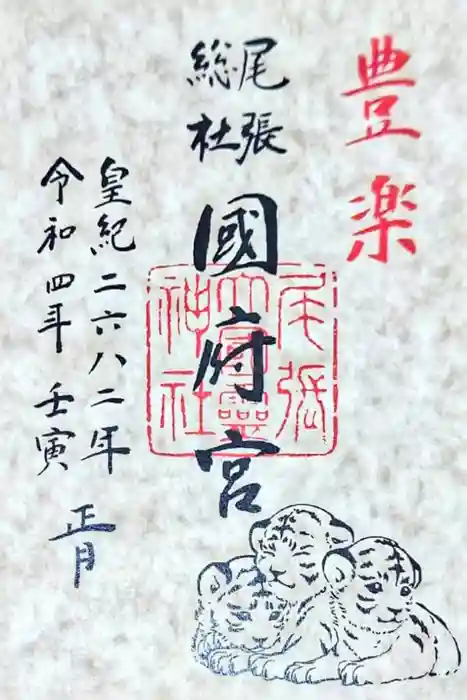 豊楽
尾張
総社
國府宮
尾張
大國靈
神社
皇紀二六八二年
令和四年 壬寅
正月